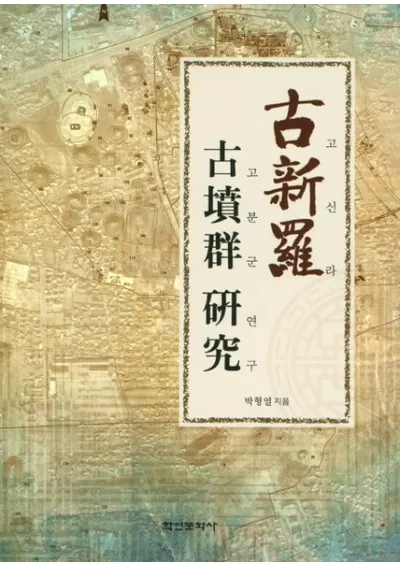 古新羅
고신라
古墳群 硏究
고분군 연구
박형열 지음
학연문화사